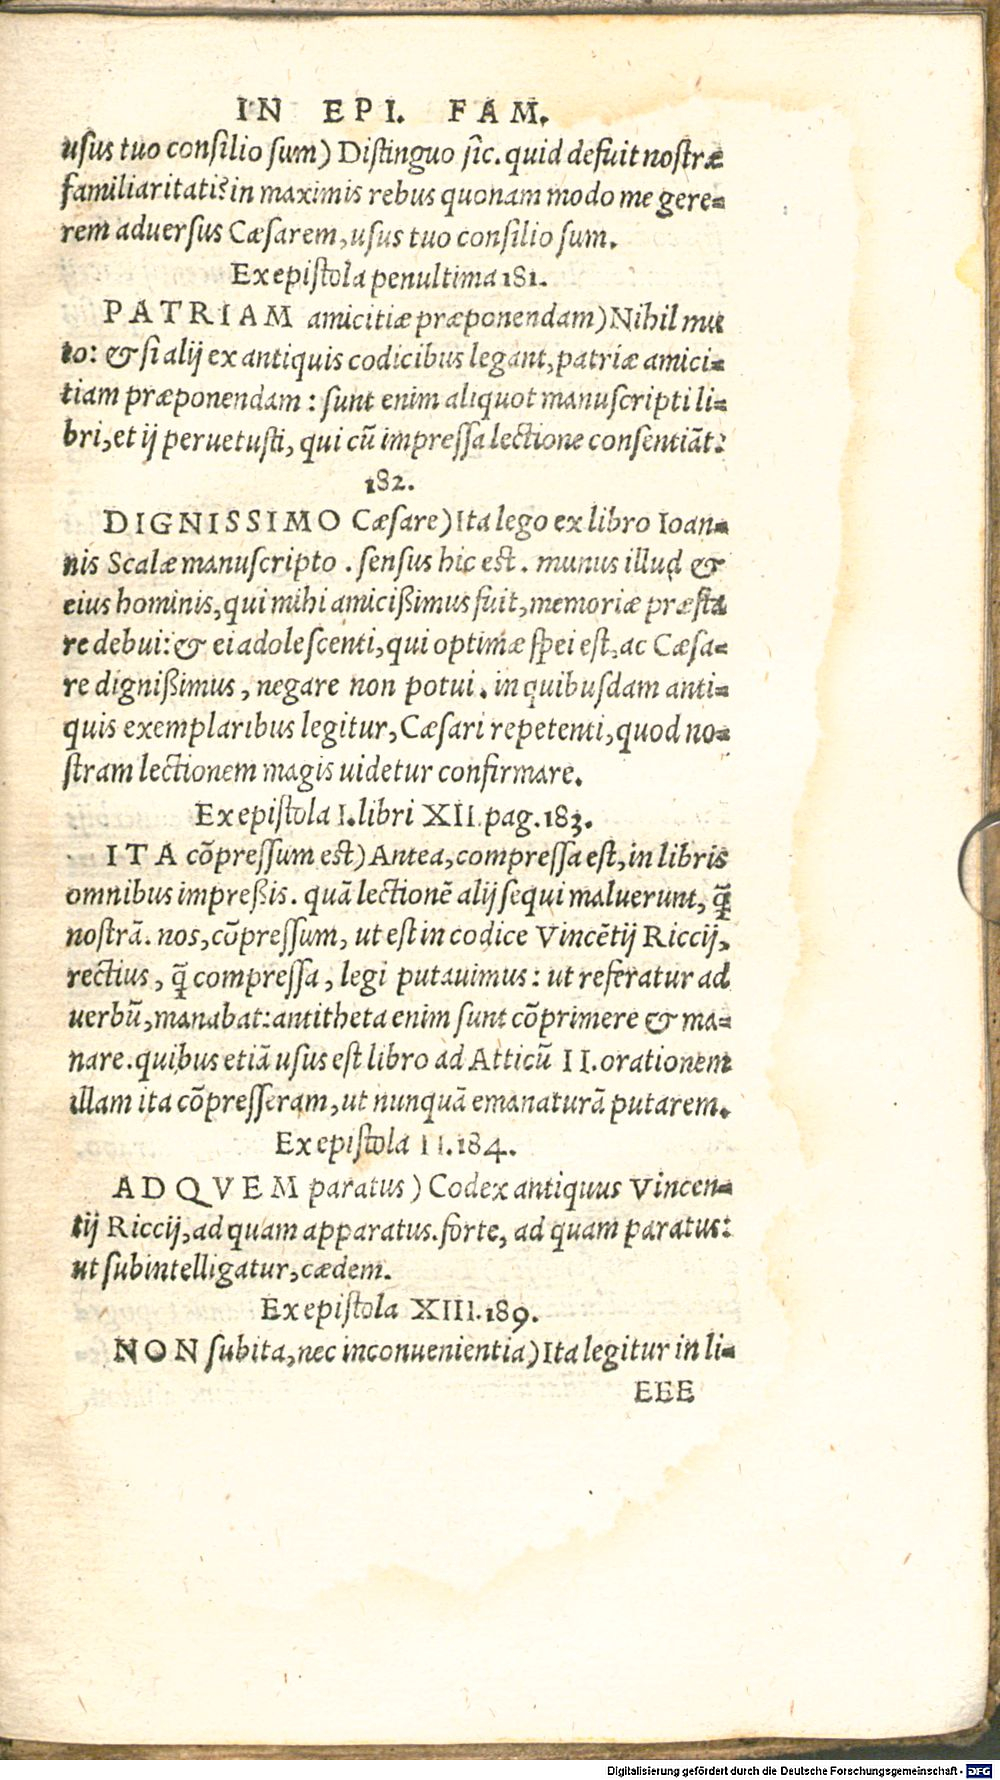 IN EPI. FAM.
usus tuo consilio sum) Distinguo sic. quid defuit nostræ
familiaritati? in maximis rebus quonam modo me gere=
rem aduersus Cæsarem, usus tuo consilio sum.
Ex epistola penultima 181.
PATRIAM amicitiæ præponendam) Nihil mu
to: & si alij ex antiquis codicibus legant, patriæ amici=
tiam præponendam: sunt enim aliquot manuscripti li=
bri, et ij peruetusti, qui cū impressa lectione consentiāt:
182.
DIGNISSIMO Cæsare) Ita lego ex libro Ioan=
nis Scalæ manuscripto. sensus hic est. munus illud &
eius hominis, qui mihi amicißimus fuit, memoriæ præsta
re debui: & ei adolescenti, qui optimæ spei est, ac Cæsa=
re dignißimus, negare non potui. in quibusdam anti=
quis exemplaribus legitur, Cæsari repetenti, quod no=
stram lectionem magis uidetur confirmare.
Ex epistola I. libri XII. pag. 183.
ITA cōpressum est) Antea, compressa est, in libris
omnibus impreßis. quā lectionē alij sequi maluerunt, q̄
nostrā. nos, cōpressum, ut est in codice Vincētij Riccij,
rectius, q̄ compressa, legi putauimus: ut referatur ad
uerbū, manabat: antitheta enim sunt cōprimere & ma=
nare. quibus etiā usus est libro ad Atticū II. orationem
illam ita cōpresseram, ut nunquā emanaturā putarem.
Ex epistola II. 184.
AD QVEM paratus) Codex antiquus Vincen=
tij Riccij, ad quam apparatus. forte, ad quam paratus:
ut subintelligatur, cædem.
Ex epistola XIII. 189.
NON subita, nec inconuenientia) Ita legitur in li=
EEE
Digitalisierung gefördert durch die Deutsche Forschungsgemeinschaft - DFG